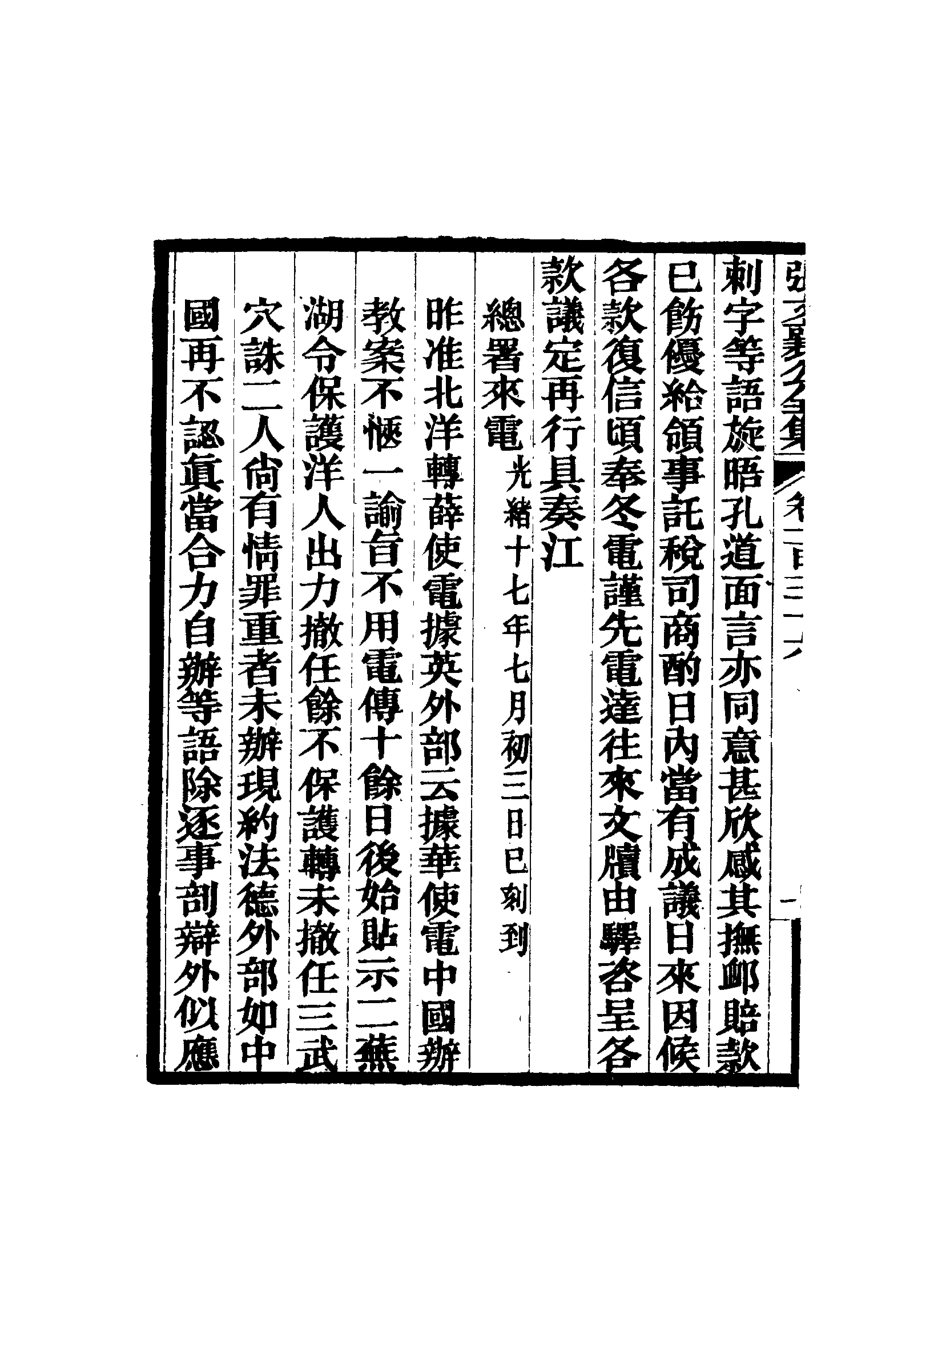 張文襄公全集 卷一百三十六
刺字等語旋晤孔道面言亦同意甚欣感其撫卹賠款
已飭優給領事託稅司商酌日內當有成議日來因候
各款復信頃奉冬電謹先電達往來文牘由驛咨呈各
款議定再行具奏江
總署來電光緒十七年七月初三日巳刻到
昨准北洋轉薛使電據英外部云據華使電中國辦
教案不愜一諭旨不用電傳十餘日後始貼示二蕪
湖令保護洋人出力撤任餘不保護轉未撤任三武
穴誅二人尙有情罪重者未辦現約法德外部如中
國再不認眞當合力自辦等語除逐事剖辯外似應